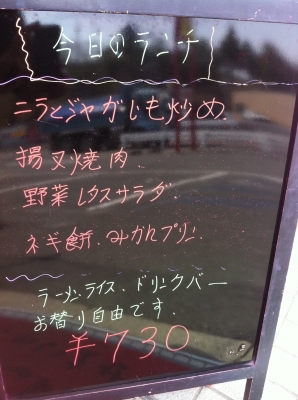 今日のランチ
ニラとジャがいも炒め
揚叉焼肉.
野菜レタスサラダ.
ネギ餅.みかんプリン.
ラーメン.ライス.ドリンクバー
お替り自由です.
¥730